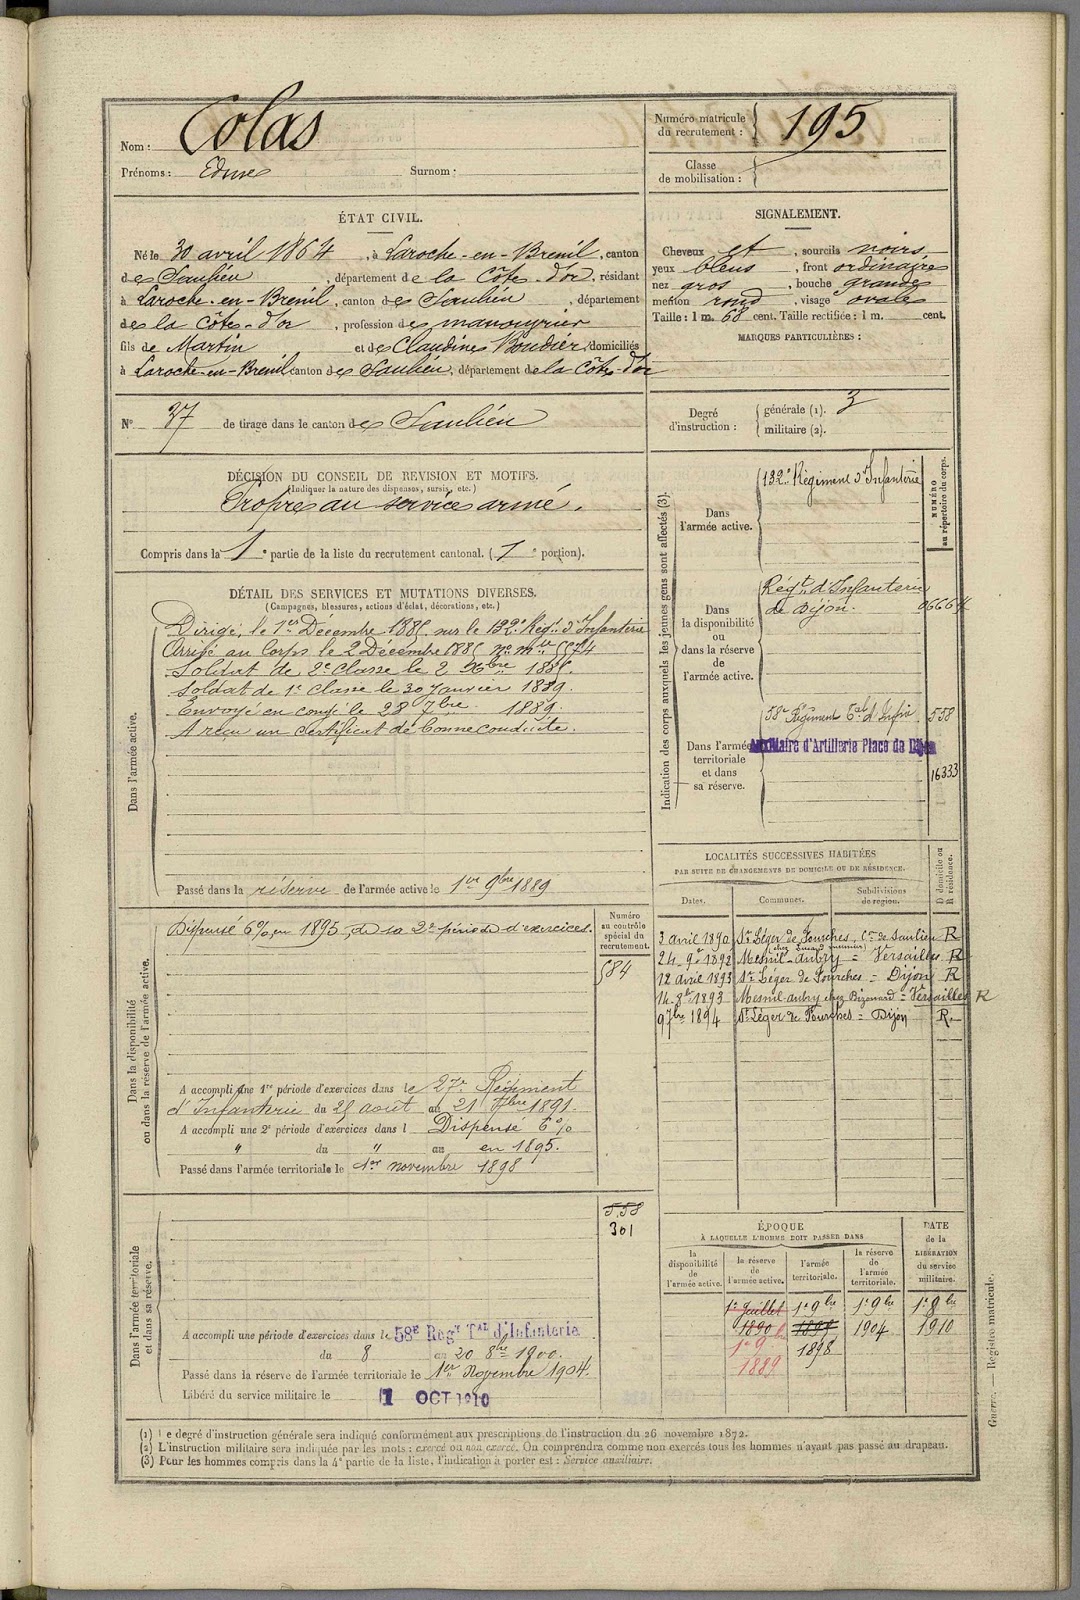 Nom : Colas
Prénoms : Edme Surnom :
Numéro matricule du recrutement : 195
Classe de mobilisation :
ÉTAT CIVIL.
Né le 30 avril 1864, à Laroche-en-Brenil, canton
de Saulieu, département de la Côte-d'or, résidant
à Laroche-en-Brenil, canton de Saulieu, département
de la Côte-d'or, profession de manouvrier
fils de Martin et de Claudine Boudier, domiciliés
à Laroche-en-Brenil canton de Saulieu, département de la Côte-d'or
SIGNALEMENT.
Cheveux et, sourcils noirs
yeux bleus, front ordinaire
nez gros, bouche grande
menton rond, visage ovale
Taille : 1 m. 68 cent. Taille rectifiée : 1 m. cent.
MARQUES PARTICULIÈRES :
N° 37 de tirage dans le canton de Saulieu
Degré d'instruction : générale (1). 3
militaire (2).
DÉCISION DU CONSEIL DE REVISION ET MOTIFS.
(Indiquer la nature des dispenses, sursis, etc.)
Propre au service armé.
Compris dans la 1e partie de la liste du recrutement cantonal. (1e portion).
DÉTAIL DES SERVICES ET MUTATIONS DIVERSES.
(Campagnes, blessures, actions d'éclat, décorations, etc.)
Dans l'armée active.
Dirigé le 1er Décembre 1885 sur le 132e Régt d'Infanterie
Arrivé au Corps le 2 Décembre 1885 no mle 5574
Soldat de 2e Classe le 2 Xbre 1885.
Soldat de 1e Classe le 30 Janvier 1889.
Envoyé en congé le 28 7bre 1889.
A reçu un certificat de bonne conduite.
Passé dans la réserve de l'armée active le 1er 9bre 1889
Indication des corps auxquels les jeunes gens sont affectés (3).
NUMÉRO au répertoire du corps.
Dans l'armée active.
132e Régiment d'Infanterie
Dans la disponibilité ou dans la réserve de l'armée active.
Régt d'Infanterie
de Dijon.
Dans l'armée territoriale et dans sa réserve.
58e Régiment Tal d'Infie 558
Auxiliaire d'Artillerie Place de Dijon
16333
LOCALITÉS SUCCESSIVES HABITÉES
PAR SUITE DE CHANGEMENTS DE DOMICILE OU DE RÉSIDENCE.
Dates. Communes. Subdivisions de région. D domicile ou R résidence.
3 avril 1890 St Léger de Fourches, Con de Saulieu R
24 9e 1892 Mesnil-Aubry = Versailles R
12 avril 1893 St Léger de Fourches = Dijon R
14 8b 1893 Mesnil-aubry chez Bizouard = Versailles R
9 7bre 1894 St Léger de Fourches = Dijon R.
Dans la disponibilité ou dans la réserve de l'armée active.
Numéro au contrôle spécial du recrutement.
584
Dispensé 6% en 1895, de sa 2e période d'exercices.
A accompli une 1re période d'exercices dans le 27e Régiment
d'Infanterie du 25 août au 21 7bre 1891.
A accompli une 2e période d'exercices dans l Dispensé 6%
" du " au en 1895.
Passé dans l'armée territoriale le 1er novembre 1898
Dans l'armée territoriale et dans sa réserve.
558
301
A accompli une période d'exercices dans le 58E Régt TAL d'Infanterie
du 8 au 20 8bre 1900.
Passé dans la réserve de l'armée territoriale le 1er Novembre 1904.
Libéré du service militaire le 1 OCT 1910
ÉPOQUE
À LAQUELLE L'HOMME DOIT PASSER DANS
la disponibilité de l'armée active. la réserve de l'armée active. l'armée territoriale. la réserve de l'armée territoriale.
DATE de la LIBÉRATION du service militaire.
1e Juillet 1e 9bre 1e 9bre 1e 8bre
1890 1899 1904 1910
1e 9b 1898
1889
(1) Le degré d'instruction générale sera indiqué conformément aux prescriptions de l'instruction du 26 novembre 1872.
(2) L'instruction militaire sera indiquée par les mots : exercé ou non exercé. On comprendra comme non exercés tous les hommes n'ayant pas passé au drapeau.
(3) Pour les hommes compris dans la 4e partie de la liste, l'indication à porter est : Service auxiliaire.
Guerre. — Registre matricule.